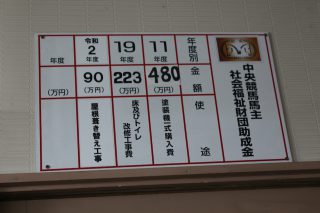 中央競馬馬主
社会福祉財団助成金
年度別
金額
使途
11
年度
480
(万円)
塗装機一式購入費
19
年度
223
(万円)
床及びトイレ
改修工事費
令和
2
年度
90
(万円)
屋根葺き替え工事
年度
(万円)